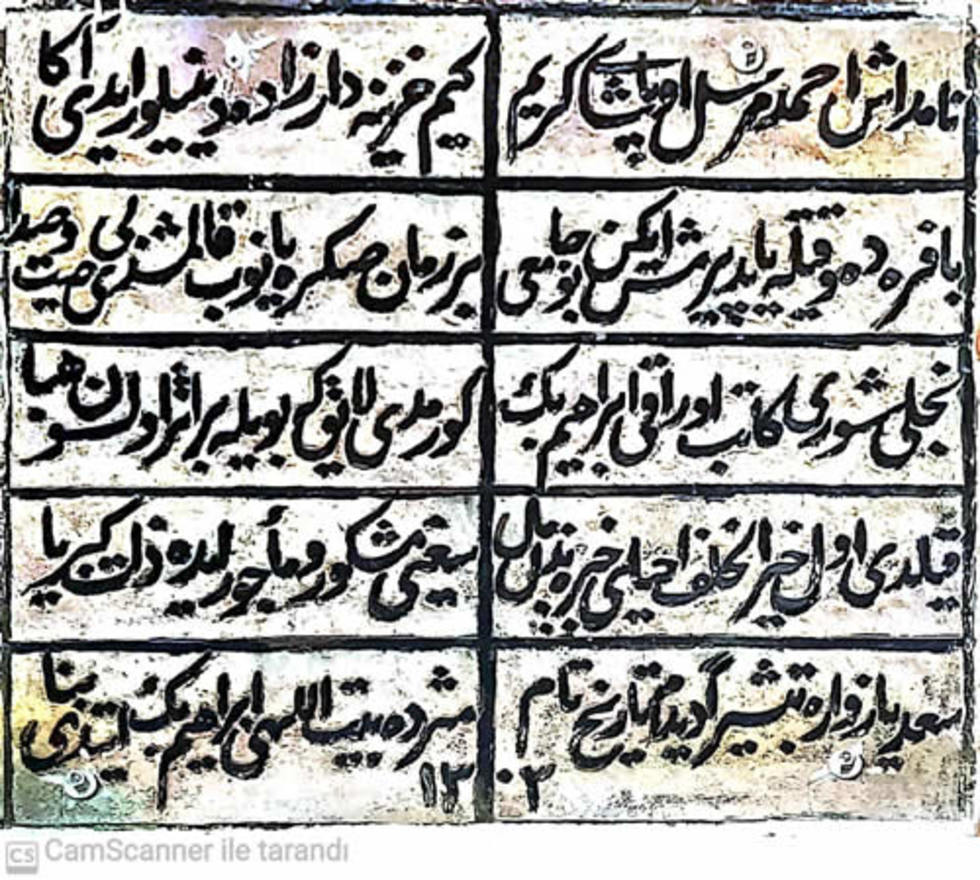 نامداش احمد مرسل او پاشای کریم
کیم خزینه‌دار زاده دینیلور ایدی آکا
بافره ده وقتیله یاپدیرمش ایکن جامی بوسی
بر زمان صکره یانوب قالمشدی بی صیت و صدا
نجلی شوری کاتب اوراقی ابراهیم بك
کورمدی لایق که بویله بر اثر اولسون هبا
قیلدی اول خیر الخلف احیای خیره بذل مال
سعینی مشکور و مأجور ایده ذات کبریا
سعدیا زواره تبشیر ایدیم تاریخ تام
شهرده بیت اللهی ابراهیم بك ایتدی بنا
۱۳۰۲
CS CamScanner ile tarandı